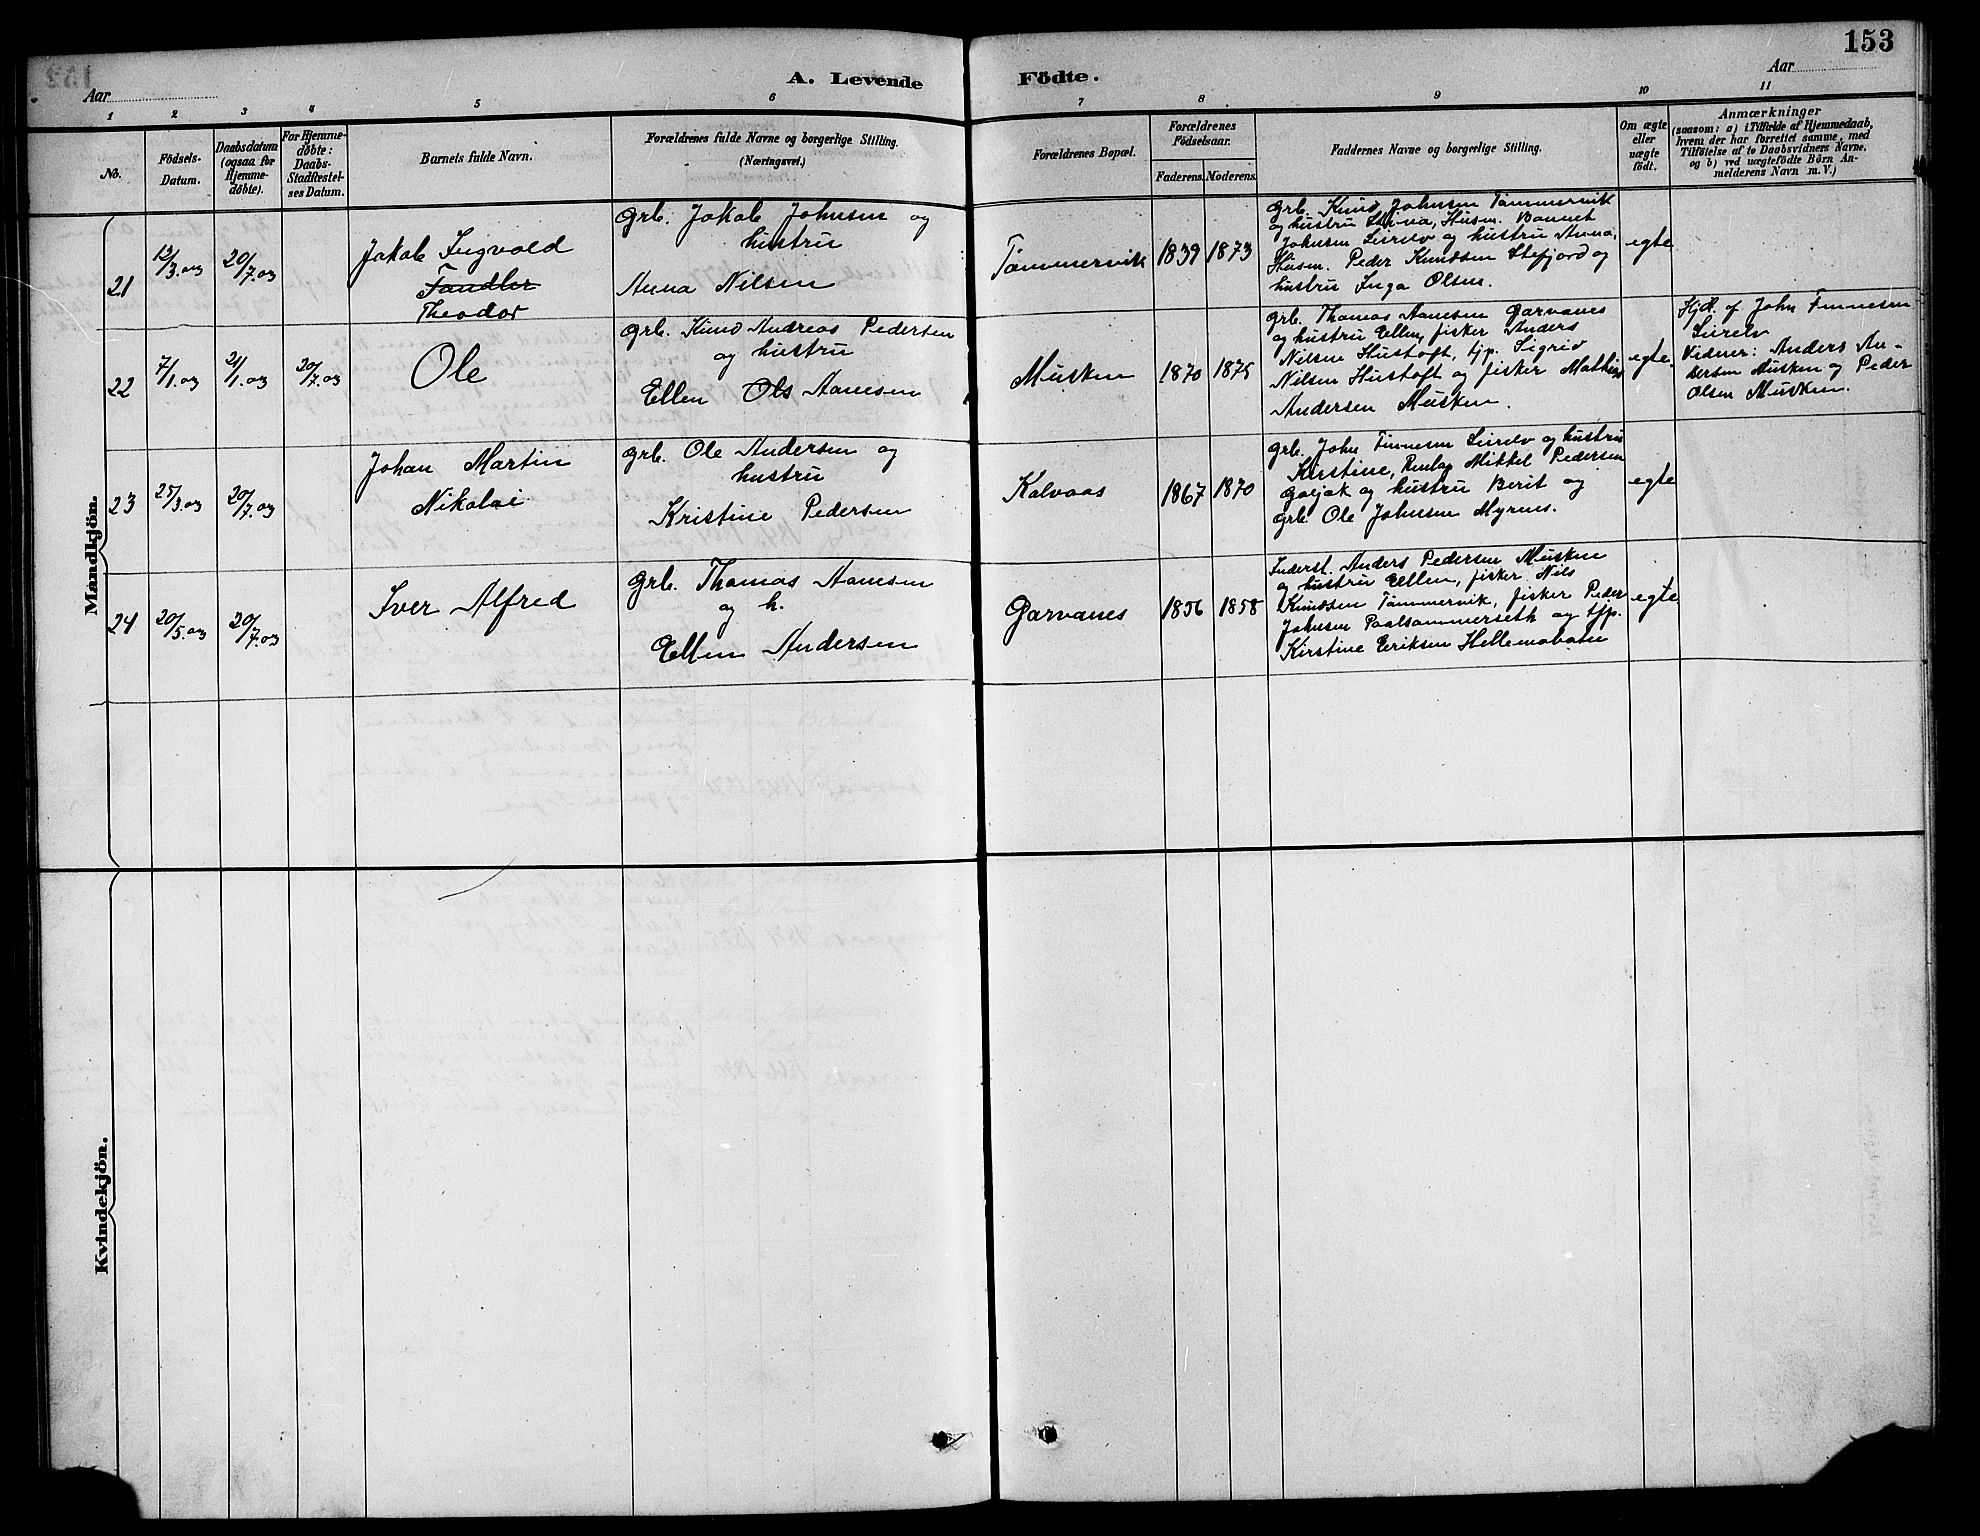 153
A. Levende Födte.
Aar
Aar
1 2 3 4 5 6 7 8 9 10 11
No.
Födsels-
Datum.
Daabsdatum
(ogsaa for
Hjemme-
döbte).
For Hjemme-
döbte:
Daabs-
Stadfestel-
ses Datum.
Barnets fulde Navn.
Forældrenes fulde Navne og borgerlige Stilling.
(Næringsvei.)
Forældrenes Bopæl.
Forældrenes
Födselsaar.
Faderens. Moderens.
Faddernes Navne og borgerlige Stilling.
Om ægte
eller
uægte
födt.
Anmærkninger
(saasom: a) i Tilfælde af Hjemmedaab,
hvem der har forrettet samme, med
Tilföielse af to Daabsvidners Navne,
og b) ved uægtefödte Börn An-
melderens Navn m. V.)
Mandkjön.
21
12/3.03
20/7.03
Jakob Ingvald
Theodor
Grb. Jakob Johnsen og
hustru
Anna Nilsen
Tømmervik
1839
1873
Grb. Knud Johnsen Tømmervik
og hustru Stina, Husm. Bonnet
Johnsen Leirelv og hustru Anna,
Husm. Peder Knudsen Stefjord og
hustru Inga Olsen.
egte
22
7/1.03
21/1.03
20/7.03
Ole
Grb. Knud Andreas Pedersen
og hustru
Ellen Ols Aamsen
Musken
1870
1875
Grb. Thomas Aamsen Garvanes
og hustru Ellen, fisker Anders
Nilsen Hustoft, tjp. Sigrid
Nilsen Hustoft og fisker Mathias
Andersen Musken.
egte.
Hjd. af John Finnesen
Leirelv
Vidner: Anders An-
dersen Musken og Peder
Olsen Musken.
23
25/3.03
20/7.03
Johan Martin
Nikolai
Grb. Ole Andersen og
hustru
Kristine Pedersen
Kalvaas
1867
1870
Grb. John Finnesen Leirelv og hustru
Kirstine, Renlap Mikkel Pedersen
Goljok og hustru Berit og
Grb. Ole Johnsen Myrnes.
egte
24
20/5.03
20/7.03
Iver Alfred
Grb. Thomas Aamsen
og h.
Ellen Andersen
Garvanes
1856
1858
Inderst. Anders Pedersen Musken
og hustru Ellen, fisker Nils
Knudsen Tømmervik, fisker Peder
Johnsen Paalsommerseth og tjp.
Kirstine Eriksen Hellemobotn
egte
Kvindekjön.